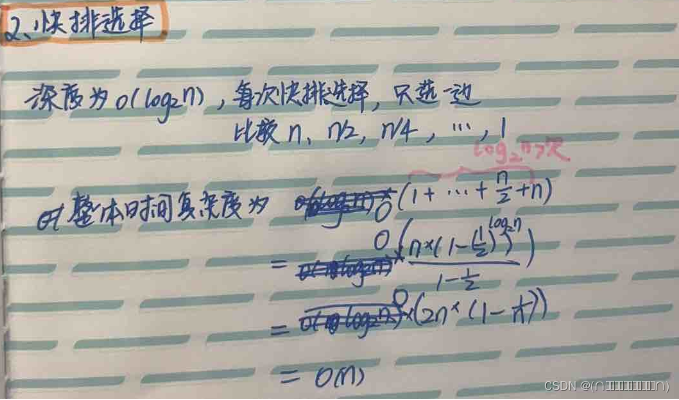 2、快排选择
深度为O(log₂n)，每次快排选择，只选一边
比较 n、n/2，n/4，…，1
log₂n次
整体时间复杂度为 O(1+…+n/2+n)
= O(n×(1-(1/2)^log₂n)/(1-1/2))
= O(2n×(1-1/n))
= O(n)
CSDN @